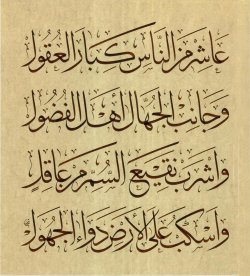 عَاشِرْ مِنَ النَّاسِ كِبَارَ العُقُولْ
وَجَانِبِ الجُهَّالَ أَهْلَ الفُضُولْ
وَاشْرَبْ نَقِيعَ السُّمِّ مِنْ عَاقِلٍ
وَاسْكُبْ عَلَى الأَرْضِ دَوَاءَ الجَهُولْ